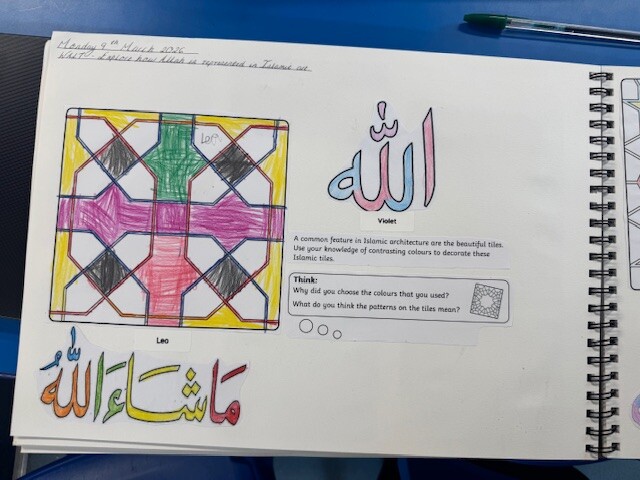 Monday 9th March 2026
WALT:- Explore how Allah is represented in Islamic art
Leo
الله
Violet
A common feature in Islamic architecture are the beautiful tiles.
Use your knowledge of contrasting colours to decorate these
Islamic tiles.
Think:
Why did you choose the colours that you used?
What do you think the patterns on the tiles mean?
Leo
مَا شَاءَ اللهُ